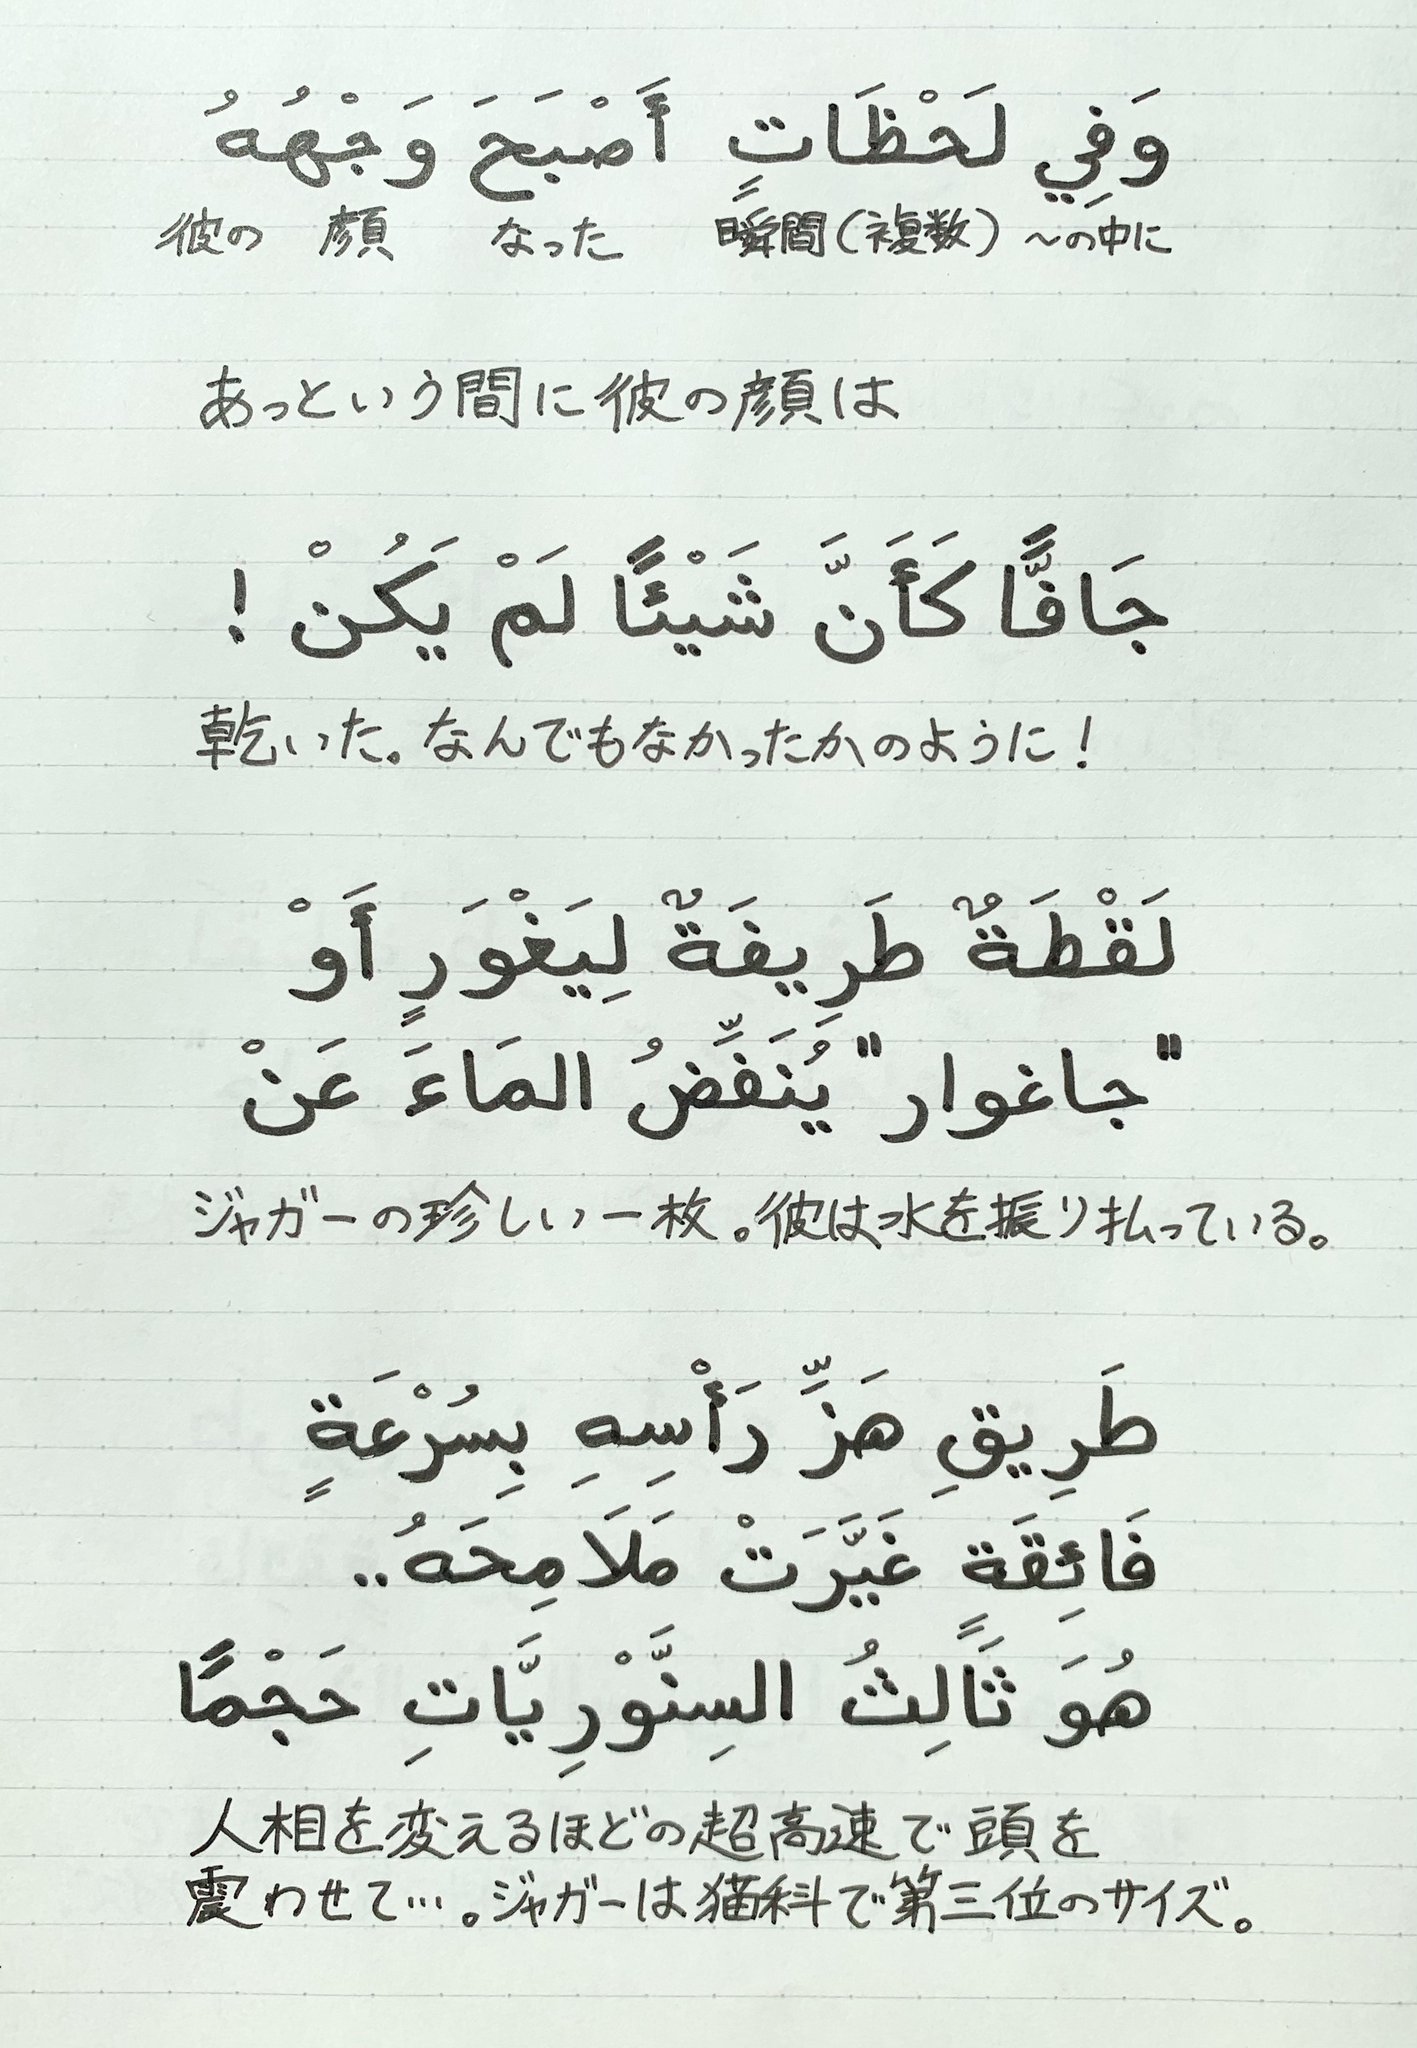 وَفِي لَحْظَاتٍ أَصْبَحَ وَجْهُهُ
彼の 顔 なった 瞬間(複数) ～の中に
あっという間に彼の顔は
جَافًّا كَأَنَّ شَيْئًا لَمْ يَكُنْ !
乾いた。なんでもなかったかのように!
لَقْطَةٌ طَرِيفَةٌ لِيَغْوَرٍ أَوْ
"جاغوار" يُنَفِّضُ المَاءَ عَنْ
ジャガーの珍しい一枚。彼は水を振り払っている。
طَرِيقِ هَزِّ رَأْسِهِ بِسُرْعَةٍ
فَائِقَةٍ غَيَّرَتْ مَلَامِحَهُ..
هُوَ ثَالِثُ السِنَّوْرِيَّاتِ حَجْمًا
人相を変えるほどの超高速で頭を
震わせて…。ジャガーは猫科で第三位のサイズ。